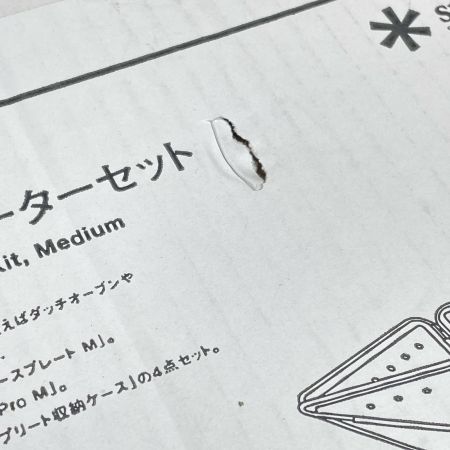 ーターセット
Kit, Medium
えばダッチオーブンや
ースプレート M」。
Pro M」。
プリート収納ケース」の4点セット。